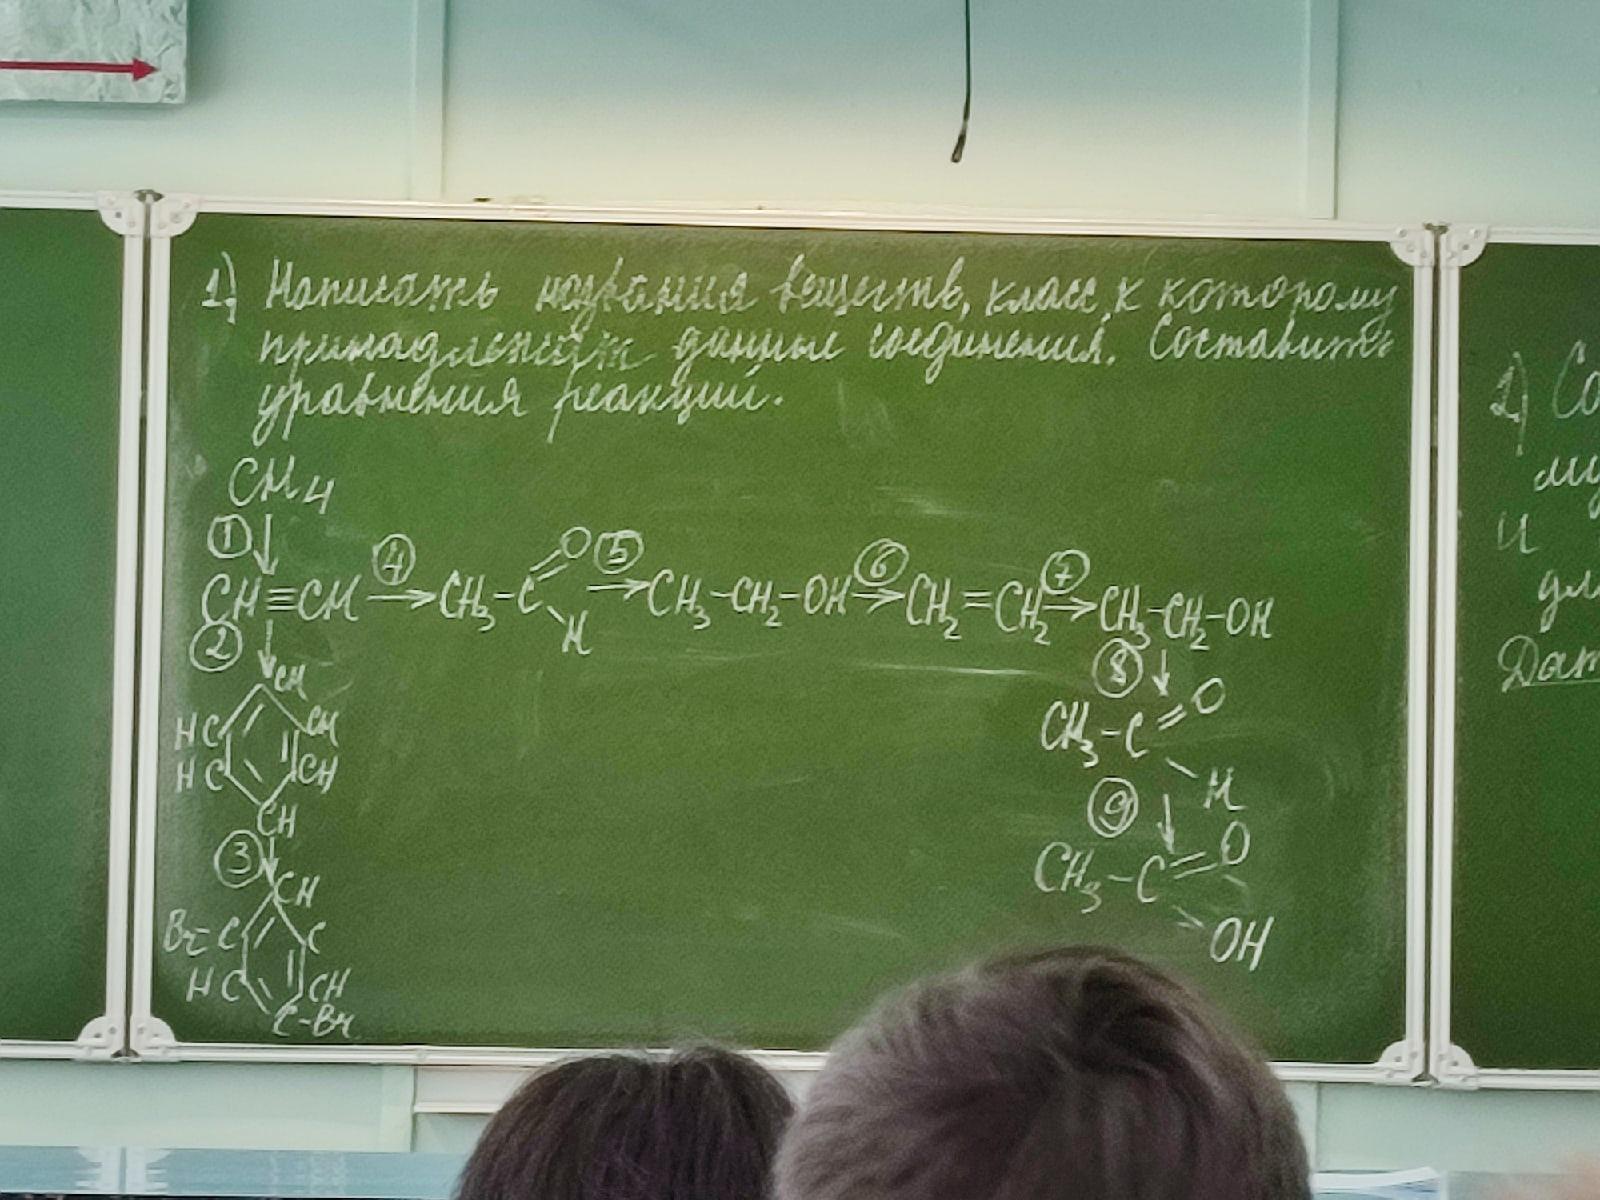 1) Написать названия веществ, класс, к которому
принадлежат данные соединения. Составить
уравнения реакций.
CH₄
① ↓
CH≡CH ④→ CH₃-C(=O)-H ⑤→ CH₃-CH₂-OH ⑥→ CH₂=CH₂ ⑦→ CH₃-CH₂-OH
② ↓
CH
HC CH
HC CH
CH
③ ↓
CH
Br-C C
HC CH
C-Br
⑧ ↓
CH₃-C=O
H
⑨ ↓
CH₃-C=O
OH
2) Со
му
и
дл
Дат